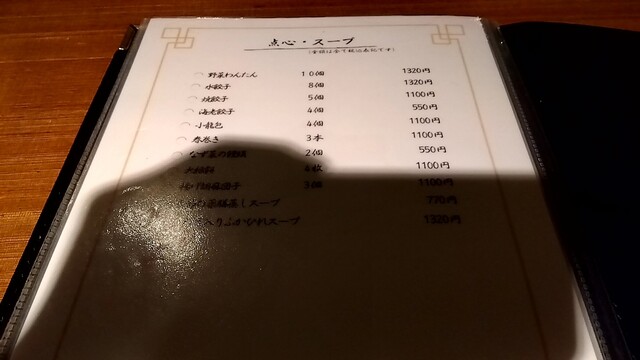 点心・スープ
(金額は全て税込表記です)
野菜わんたん 10個 1320円
水餃子 8個 1320円
焼餃子 5個 1100円
海老餃子 4個 550円
小龍包 4個 1100円
春巻き 3本 1100円
なず菜の 2個 550円
4枚 1100円
胡麻団子 3個 1100円
薬膳蒸しスープ 770円
入りふかひれスープ 1320円